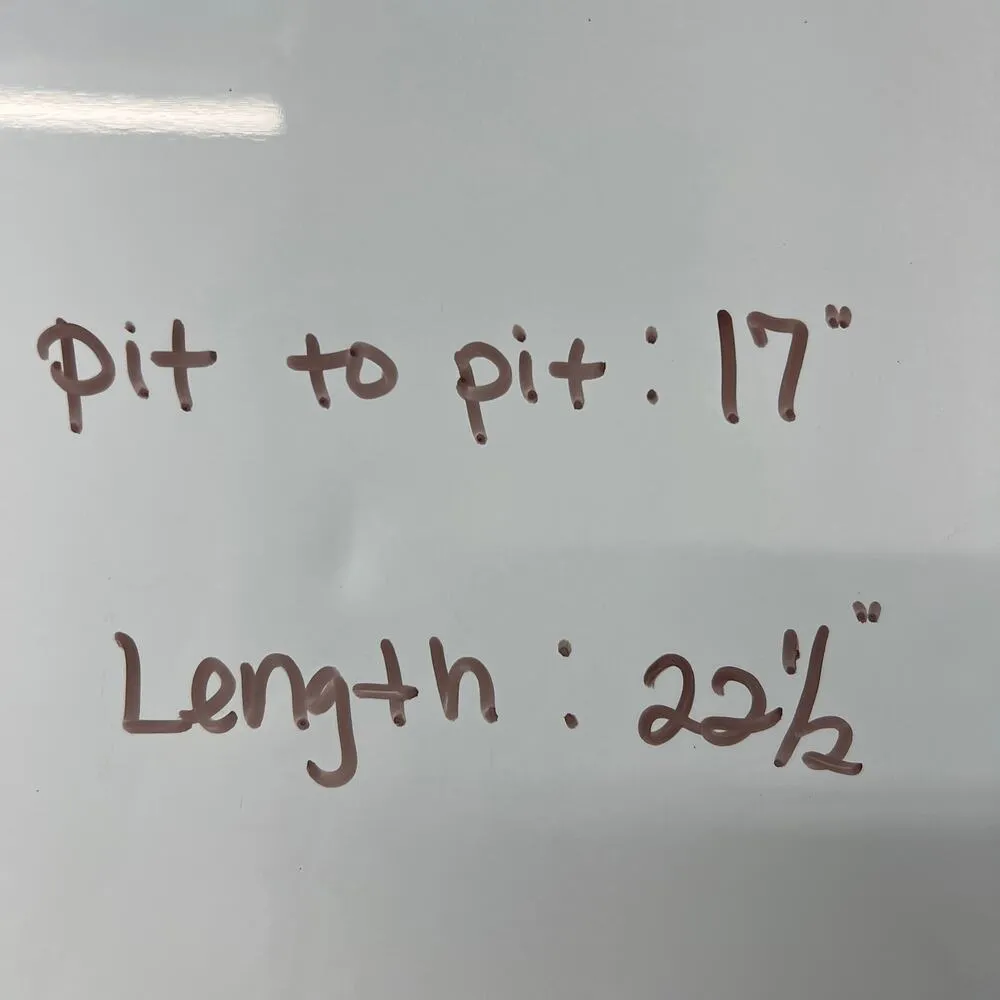 pit to pit : 17"
Length : 22 1/2"